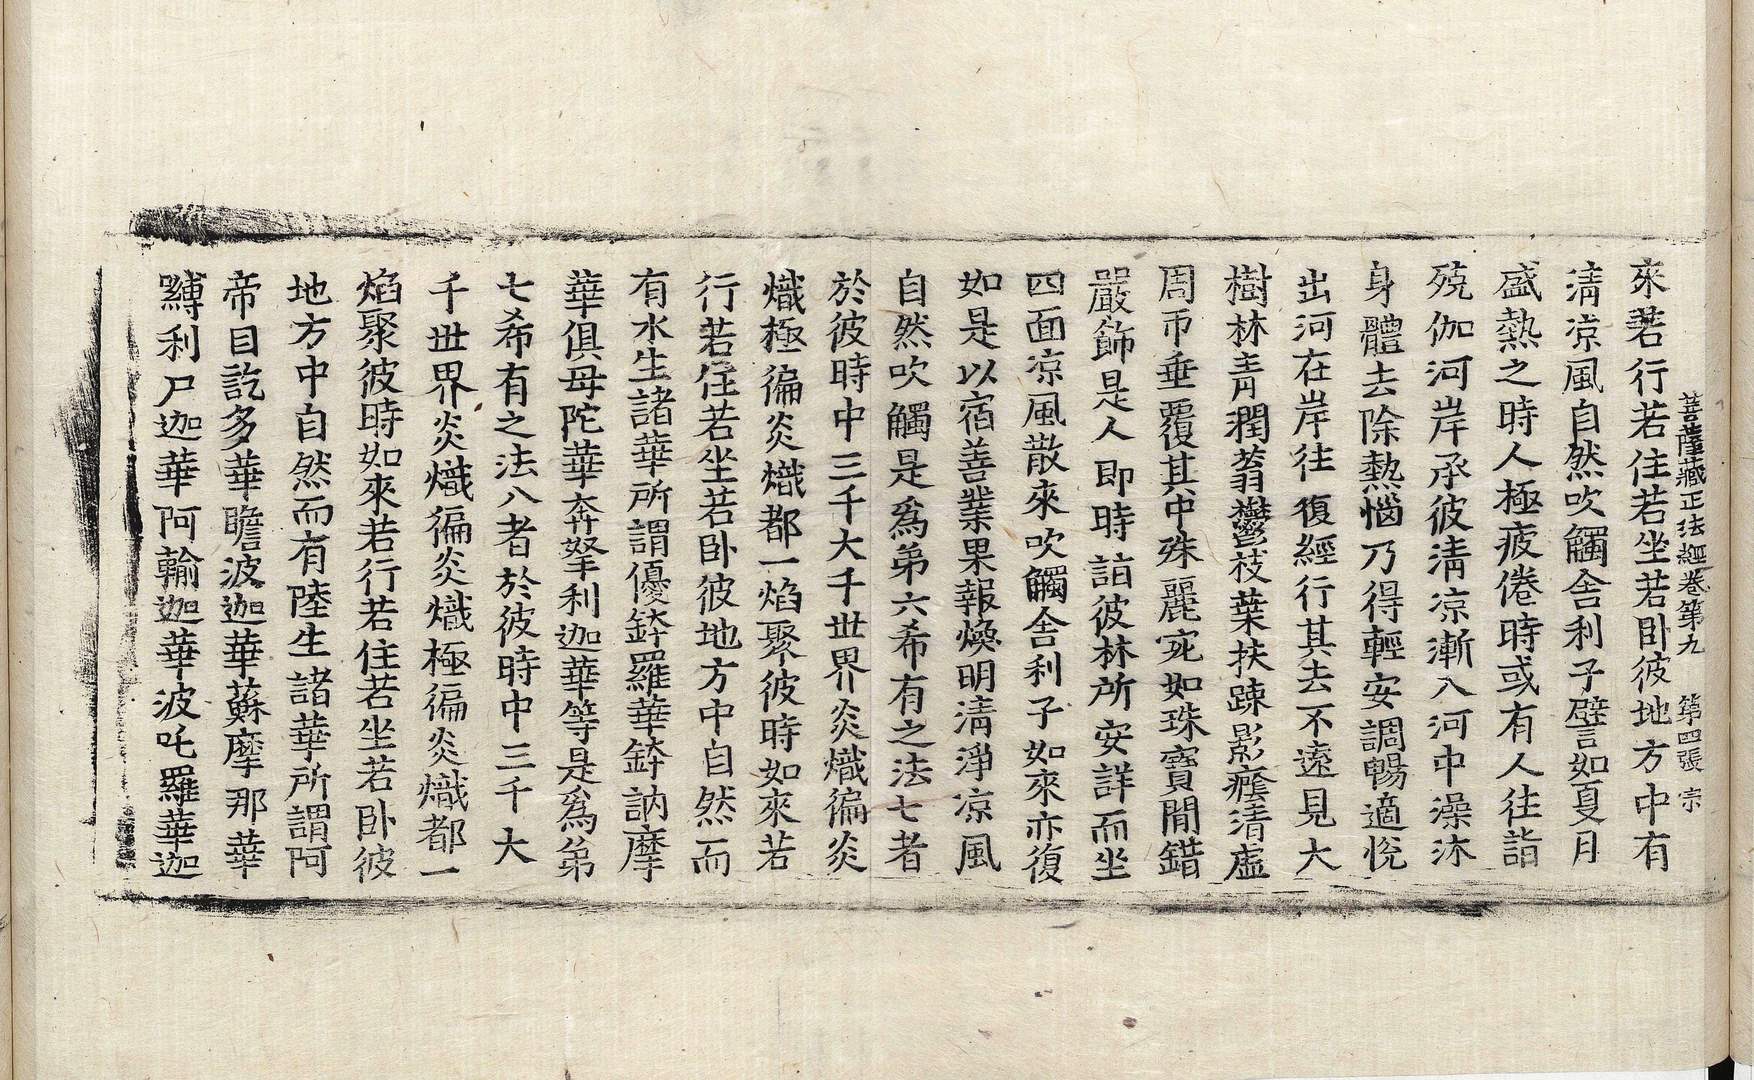 菩薩藏正法經卷第九　第四張　宗
來若行若住若坐若卧彼地方中有
淸涼風自然吹觸舍利子譬如夏月
盛熱之時人極疲倦時或有人往詣
殑伽河岸承彼淸涼漸入河中澡沐
身體去除熱惱乃得輕安調暢適恱
出河在岸往復經行其去不遠見大
樹林靑潤蓊鬱枝葉扶踈影癊淸虛
周帀垂覆其中殊麗宛如珠寶閒錯
嚴飾是人即時詣彼林所安詳而坐
四面涼風散來吹觸舍利子如來亦復
如是以宿善業果報煥明淸淨涼風
自然吹觸是爲弟六希有之法七者
於彼時中三千大千世界炎熾徧炎
熾極徧炎熾都一焰聚彼時如來若
行若住若坐若卧彼地方中自然而
有水生諸華所謂優鉢羅華鉢訥摩
華俱母陀華奔拏利迦華等是爲弟
七希有之法八者於彼時中三千大
千世界炎熾徧炎熾極徧炎熾都一
焰聚彼時如來若行若住若坐若卧彼
地方中自然而有陸生諸華所謂阿
帝目訖多華瞻波迦華蘇摩那華
嚩利尸迦華阿輸迦華波吒羅華迦